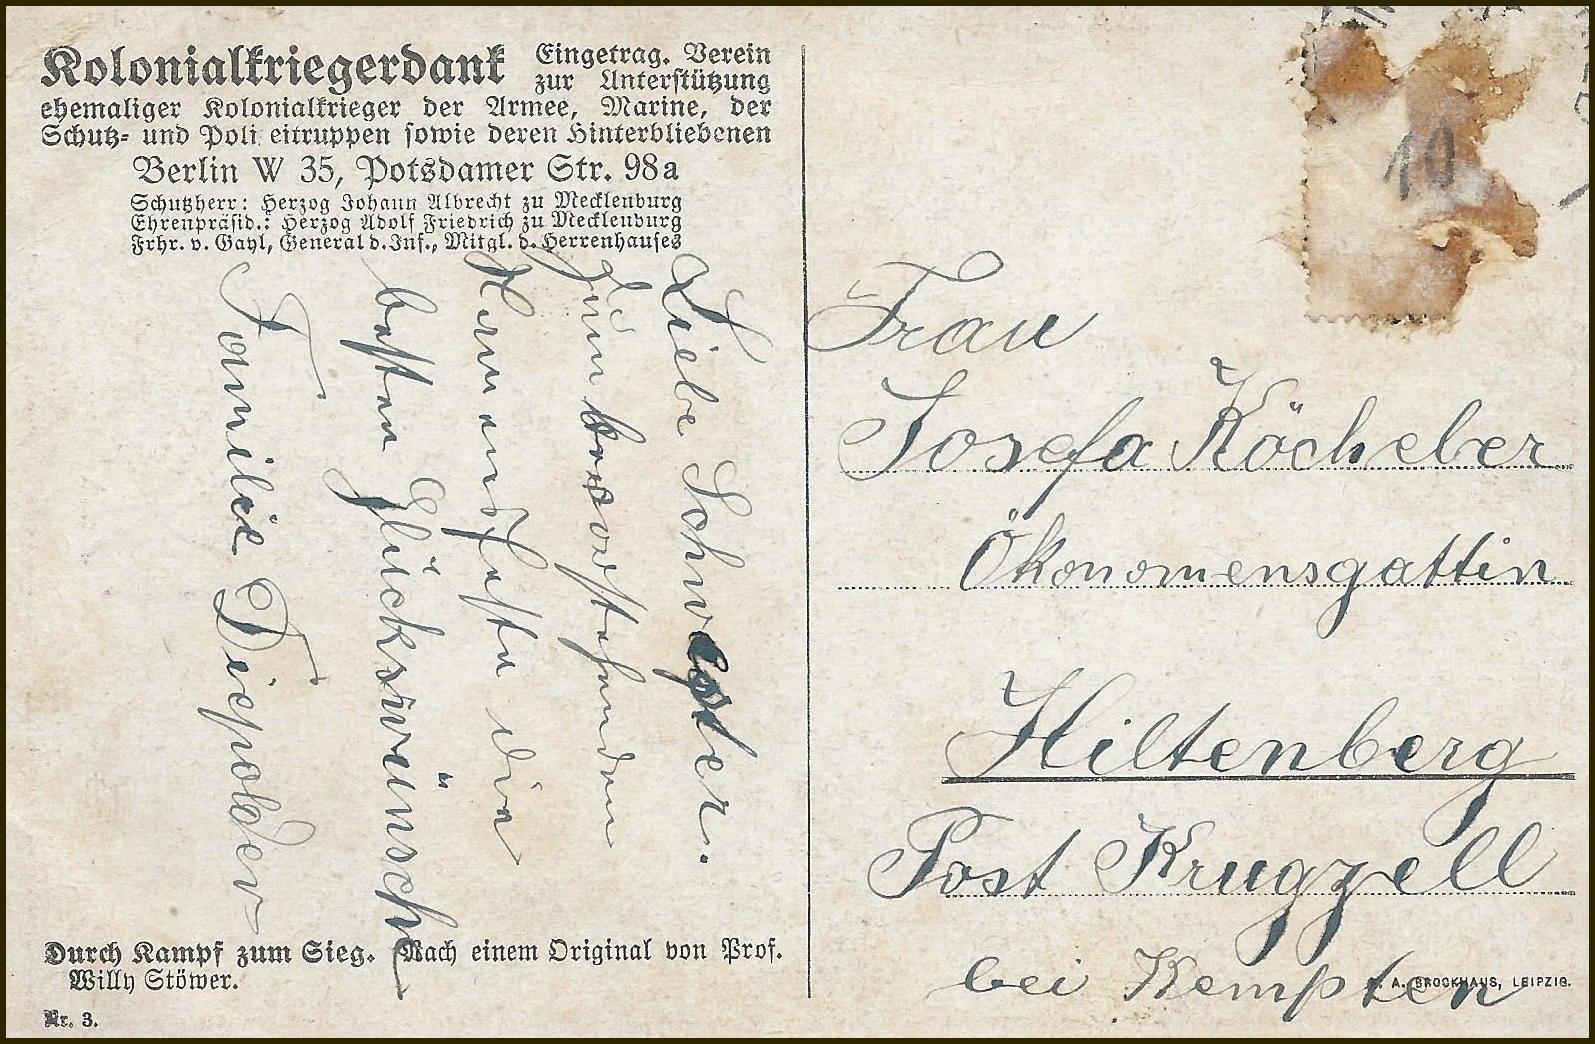 Kolonialkriegerdank Eingetrag. Verein
zur Unterstützung
ehemaliger Kolonialkrieger der Armee, Marine, der
Schutz- und Poli eitruppen sowie deren Hinterbliebenen
Berlin W 35, Potsdamer Str. 98a
Schutzherr: Herzog Johann Albrecht zu Mecklenburg
Ehrenpräsid.: Herzog Adolf Friedrich zu Mecklenburg
Frhr. v. Gayl, General d. Inf., Mitgl. d. Herrenhauses
Liebe Schwester.
Zum bevorstehenden
die
besten Glückswünsche
Familie Diepolder
Durch Kampf zum Sieg. Nach einem Original von Prof.
Willy Stöwer.
Nr. 3.
10
Frau
Josefa Köcheler
Ökonomensgattin
Hiltenberg
Post Krugzell
bei Kempten
A. BROCKHAUS, LEIPZIG.